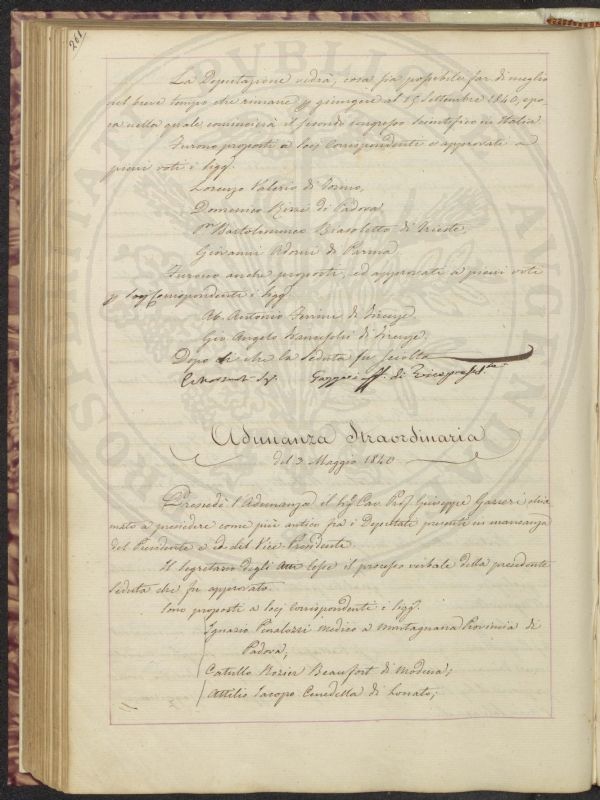 261
La Deputazione vedrà, cosa sia possibile far di meglio
nel breve tempo che rimane p giungere al 15 Settembre 1840, epo-
ca nella quale comincierà il secondo congresso scientifico in Italia.
Furono proposti a Socj Corrispondenti e approvati a
pieni voti i Sigg.
Lorenzo Valerio di Torino,
Domenico Rizzi di Padova
Bartolommeo Biasoletto di Trieste,
Giovanni Adorni di Parma
Furono anche proposti, ed approvati a pieni voti
p Socj Corrispondenti i Sigg.
Ab. Antonio di Firenze
Gio. Angelo di Firenze.
Dopo di che la Seduta fu sciolta
Gazzeri ff. di Vicepresid.te
Adunanza Straordinaria
del 3 Maggio 1840
Presiedè l'Adunanza il Sig. Cav. Prof. Giuseppe Gazzeri chia-
mato a presiedere come più antico fra i Deputati presenti in mancanza
del Presidente e del Vice-Presidente.
Il Segretario degli Atti lesse il processo verbale della precedente
Seduta che fu approvato.
Sono proposti a Socj Corrispondenti i Sigg.
Ignazio Penolazzi medico a Montagnana Provincia di
Padova;
Catullo Rogier Beaufort di Modena;
Attilio Jacopo Cenedella di Lonato;